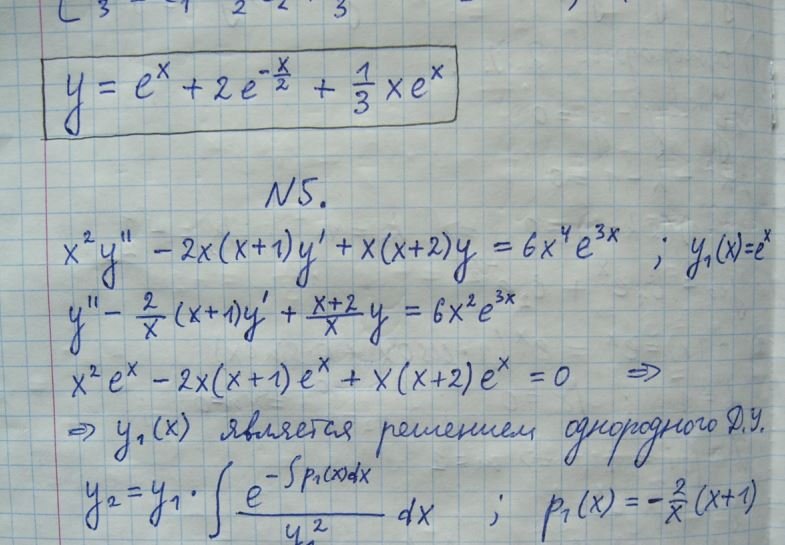 y = e^x + 2e^{-x/2} + 1/3 xe^x
N5.
x²y'' - 2x(x+1)y' + x(x+2)y = 6x⁴e^{3x} ; y₁(x)=e^x
y'' - 2/x (x+1)y' + (x+2)/x y = 6x²e^{3x}
x²e^x - 2x(x+1)e^x + x(x+2)e^x = 0 ⇒
⇒ y₁(x) является решением однородного Д.У.
y₂ = y₁ · ∫ e^{-∫p₁(x)dx} / y₁² dx ; p₁(x) = -2/x (x+1)